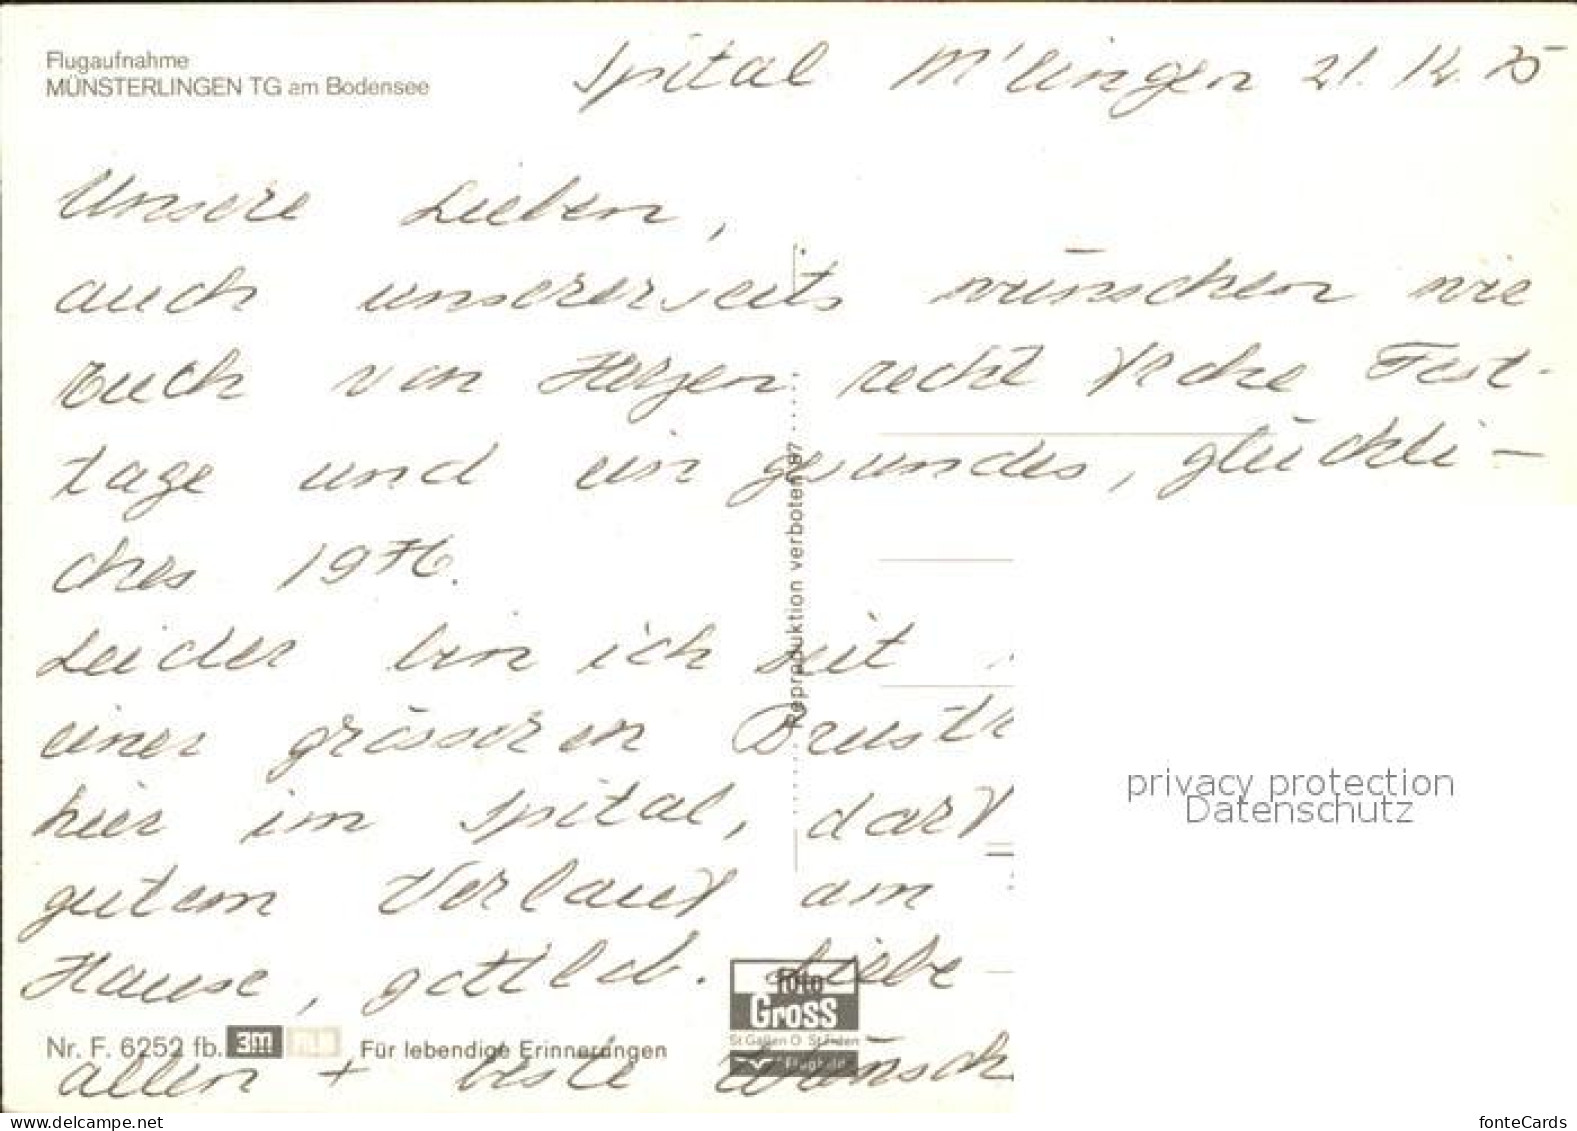 Flugaufnahme
MÜNSTERLINGEN TG am Bodensee
Spital M'lingen 21. 12. 75
Unsere Lieben,
auch unsererseits wünschen wir
Euch von Herzen recht frohe Fest-
tage und ein gesundes, glückli-
ches 1976.
Leider bin ich seit
einer grösseren
hier im Spital, darf
gutem Verlauf am
Hause, gottlob. Liebe
allen + beste
Reproduktion verboten
foto
Gross
St Gallen O St Fiden
Nr. F. 6252 fb. 3m FILM Für lebendige Erinnerungen
privacy protection
Datenschutz
delcampe.net
fonteCards